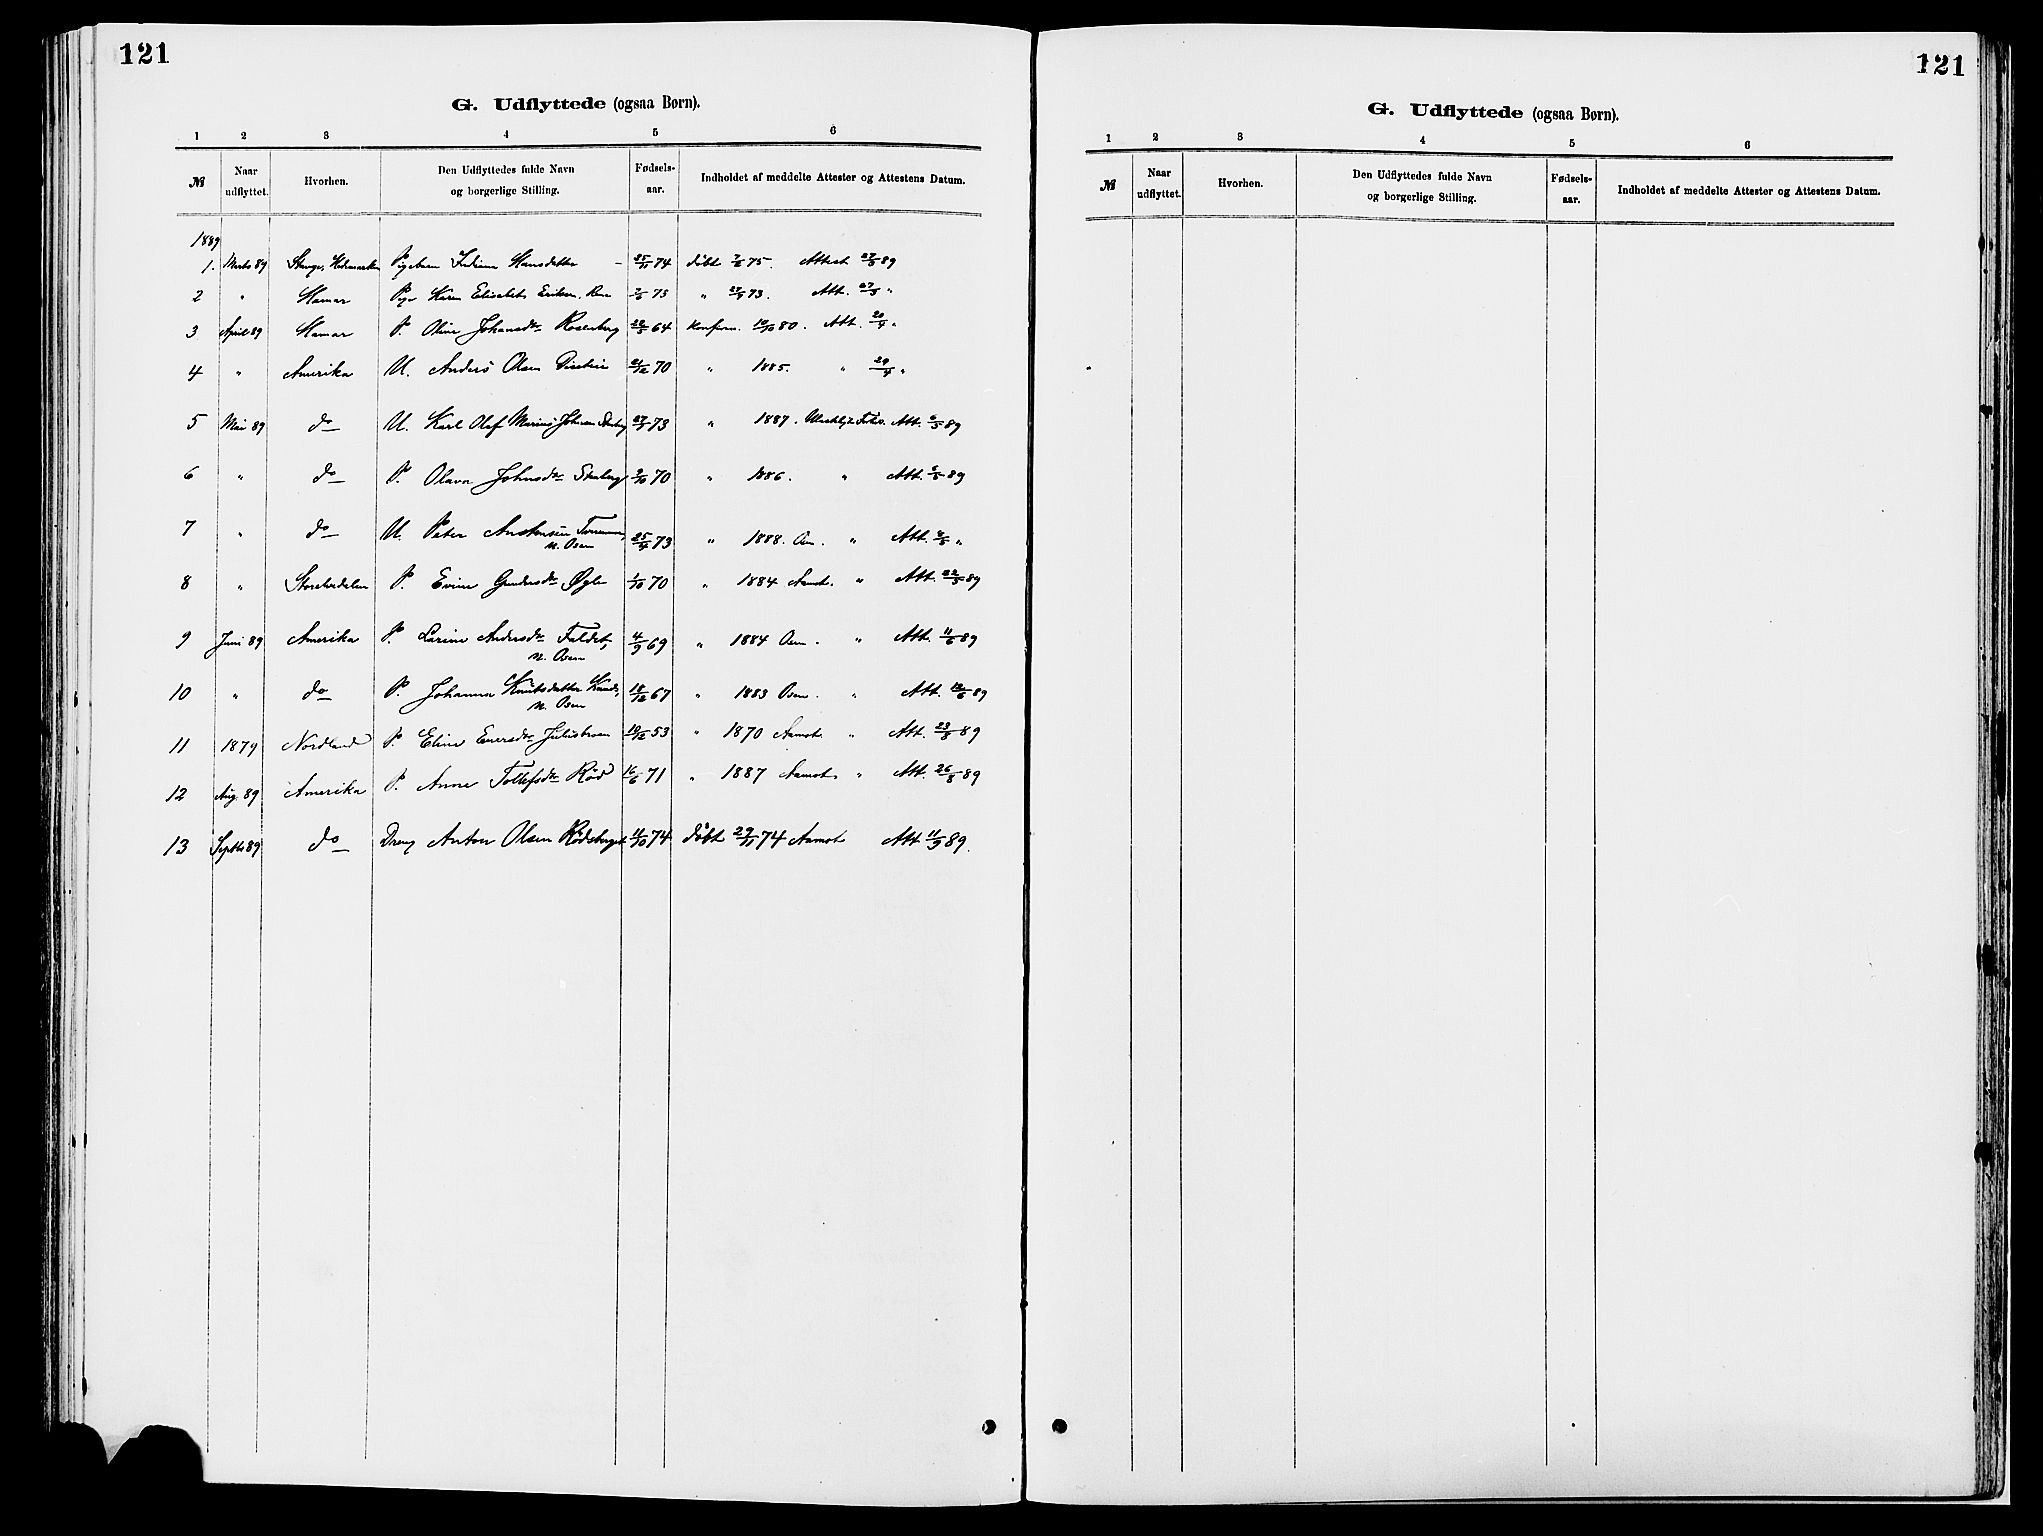 121
G. Udflyttede (ogsaa Børn).
1 2 3 4 5 6
№ Naar udflyttet. Hvorhen. Den Udflyttedes fulde Navn og borgerlige Stilling. Fødsels-aar. Indholdet af meddelte Attester og Attestens Datum.
1889
1. Marts 89 Stange, Hedemarken Pigebarn Juliane Hansdatter 25/11 74 døbt 75. Attest 27/3 89
2 " Hamar Pige Karen Elisabeth Eriksen 73 " 73. Att. 27/3 "
3 April 89 Hamar P. Oline Johansdr Rosenberg 64 Konfirm. 10/10 80. Att. 20/4 "
4 " Amerika U. Anders Olsen 21/12 70 " 1885. " 29/4 "
5 Mai 89 do U. Karl Olaf Marius Johnsen 73 " 1887. Att. 6/5 89
6 " do P. Olava Johnsdr 70 " 1886. " Att. 6/5 89
7 " do U. Peter Anstensen
n. Osen 25/4 73 " 1888. Osen. " Att. "
8 " Storelvedalen P. Evine Gundersdr Øgle 1/10 70 " 1884 Aamot. " Att. 22/5 89
9 Juni 89 Amerika P. Larine Andersdr Faldet,
n. Osen 4/9 69 " 1884 Osen. " Att. 11/6 89
10 " do P. Johanna Knutsdatter
n. Osen 18/12 67 " 1883 Osen. " Att. 12/6 89
11 1879 Nordland P. Eline Enersdr Julusmoen 19/12 53 " 1870 Aamot. " Att. 23/8 89
12 Aug. 89 Amerika P. Anne Tollefsdr Rød 16/6 71 " 1887 Aamot. " Att. 26/8 89
13 Septbr 89 do Dreng Anton Olsen Rødsberget 11/10 74 døbt 29/11 74 Aamot Att 11/9 89.
121
G. Udflyttede (ogsaa Børn).
1 2 3 4 5 6
№ Naar udflyttet. Hvorhen. Den Udflyttedes fulde Navn og borgerlige Stilling. Fødsels-aar. Indholdet af meddelte Attester og Attestens Datum.